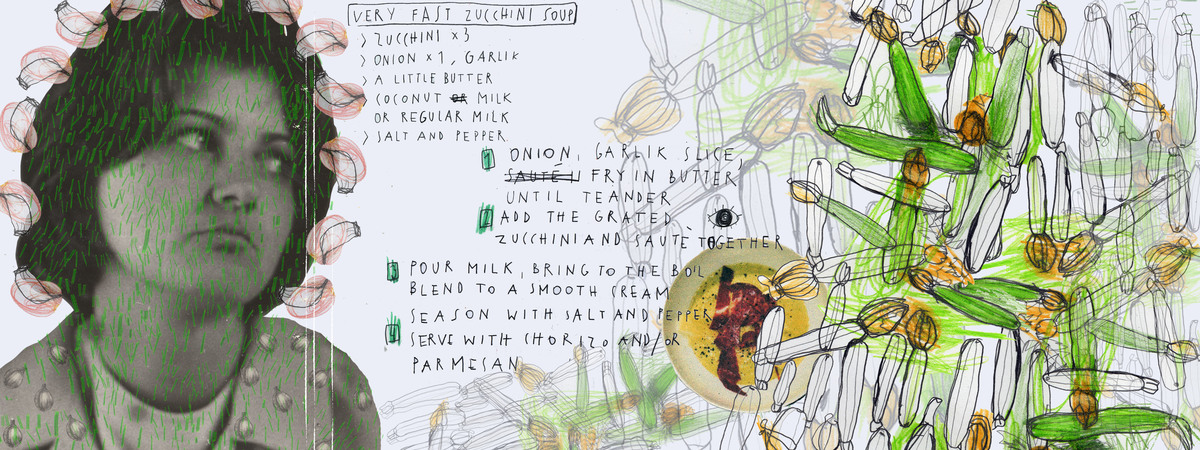 VERY FAST ZUCCHINI SOUP
> ZUCCHINI x3
> ONION x1, GARLIK
> A LITTLE BUTTER
> COCONUT OR MILK
OR REGULAR MILK
> SALT AND PEPPER
1 ONION, GARLIK SLICE,
SAUTÉ FRY IN BUTTER
UNTIL TEANDER
2 ADD THE GRATED
ZUCCHINI AND SAUTÈ TOGETHER
3 POUR MILK, BRING TO THE BOIL
BLEND TO A SMOOTH CREAM
SEASON WITH SALT AND PEPPER
4 SERVE WITH CHORIZO AND/OR
PARMESAN